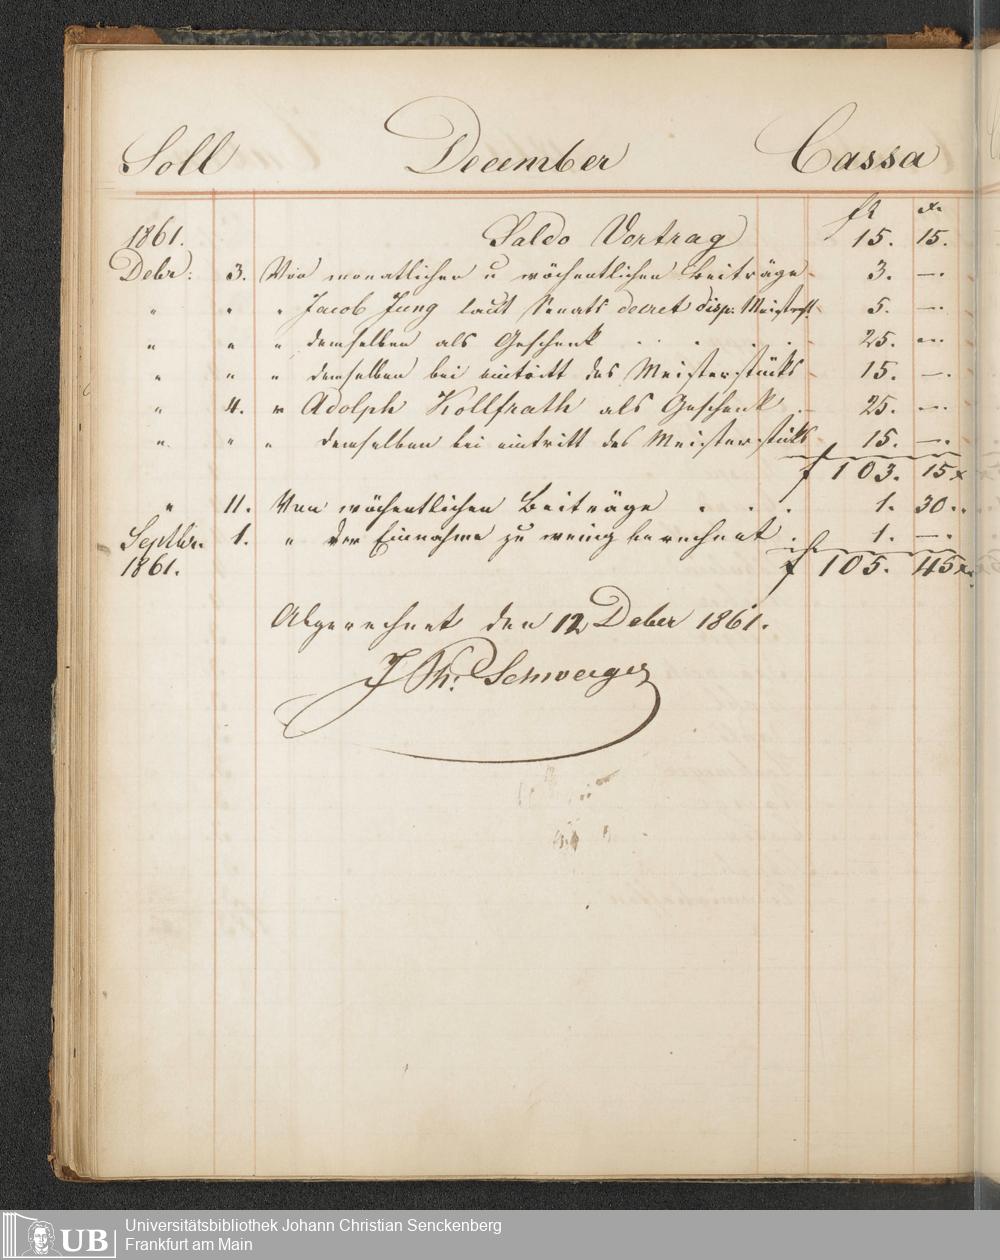 Soll December Cassa
fl x.
1861. Saldo Vortrag 15. 15.
Debr: 3. Von monatlichen u wöchentlichen Beiträge 3. —.
" " " Jacob Jung laut Senats decret disp. 5. —.
" " " demselben als Geschenk . . . . 25. —.
" " " demselben bei eintritt des Meisterstücks 15. —.
" 4. " Adolph Kollfrath als Geschenk . 25. —.
" " " demselben bei eintritt des Meisterstücks 15. —.
f 103. 15x
" 11. Von wöchentlichen Beiträge . . . 1. 30..
Septbr. 1. " der Einnahme zu wenig berechnet . 1. —.
1861. f 105. 45x.
Abgerechnet den 12 Deber 1861.
J Ph: Schweiger
UB
Universitätsbibliothek Johann Christian Senckenberg
Frankfurt am Main